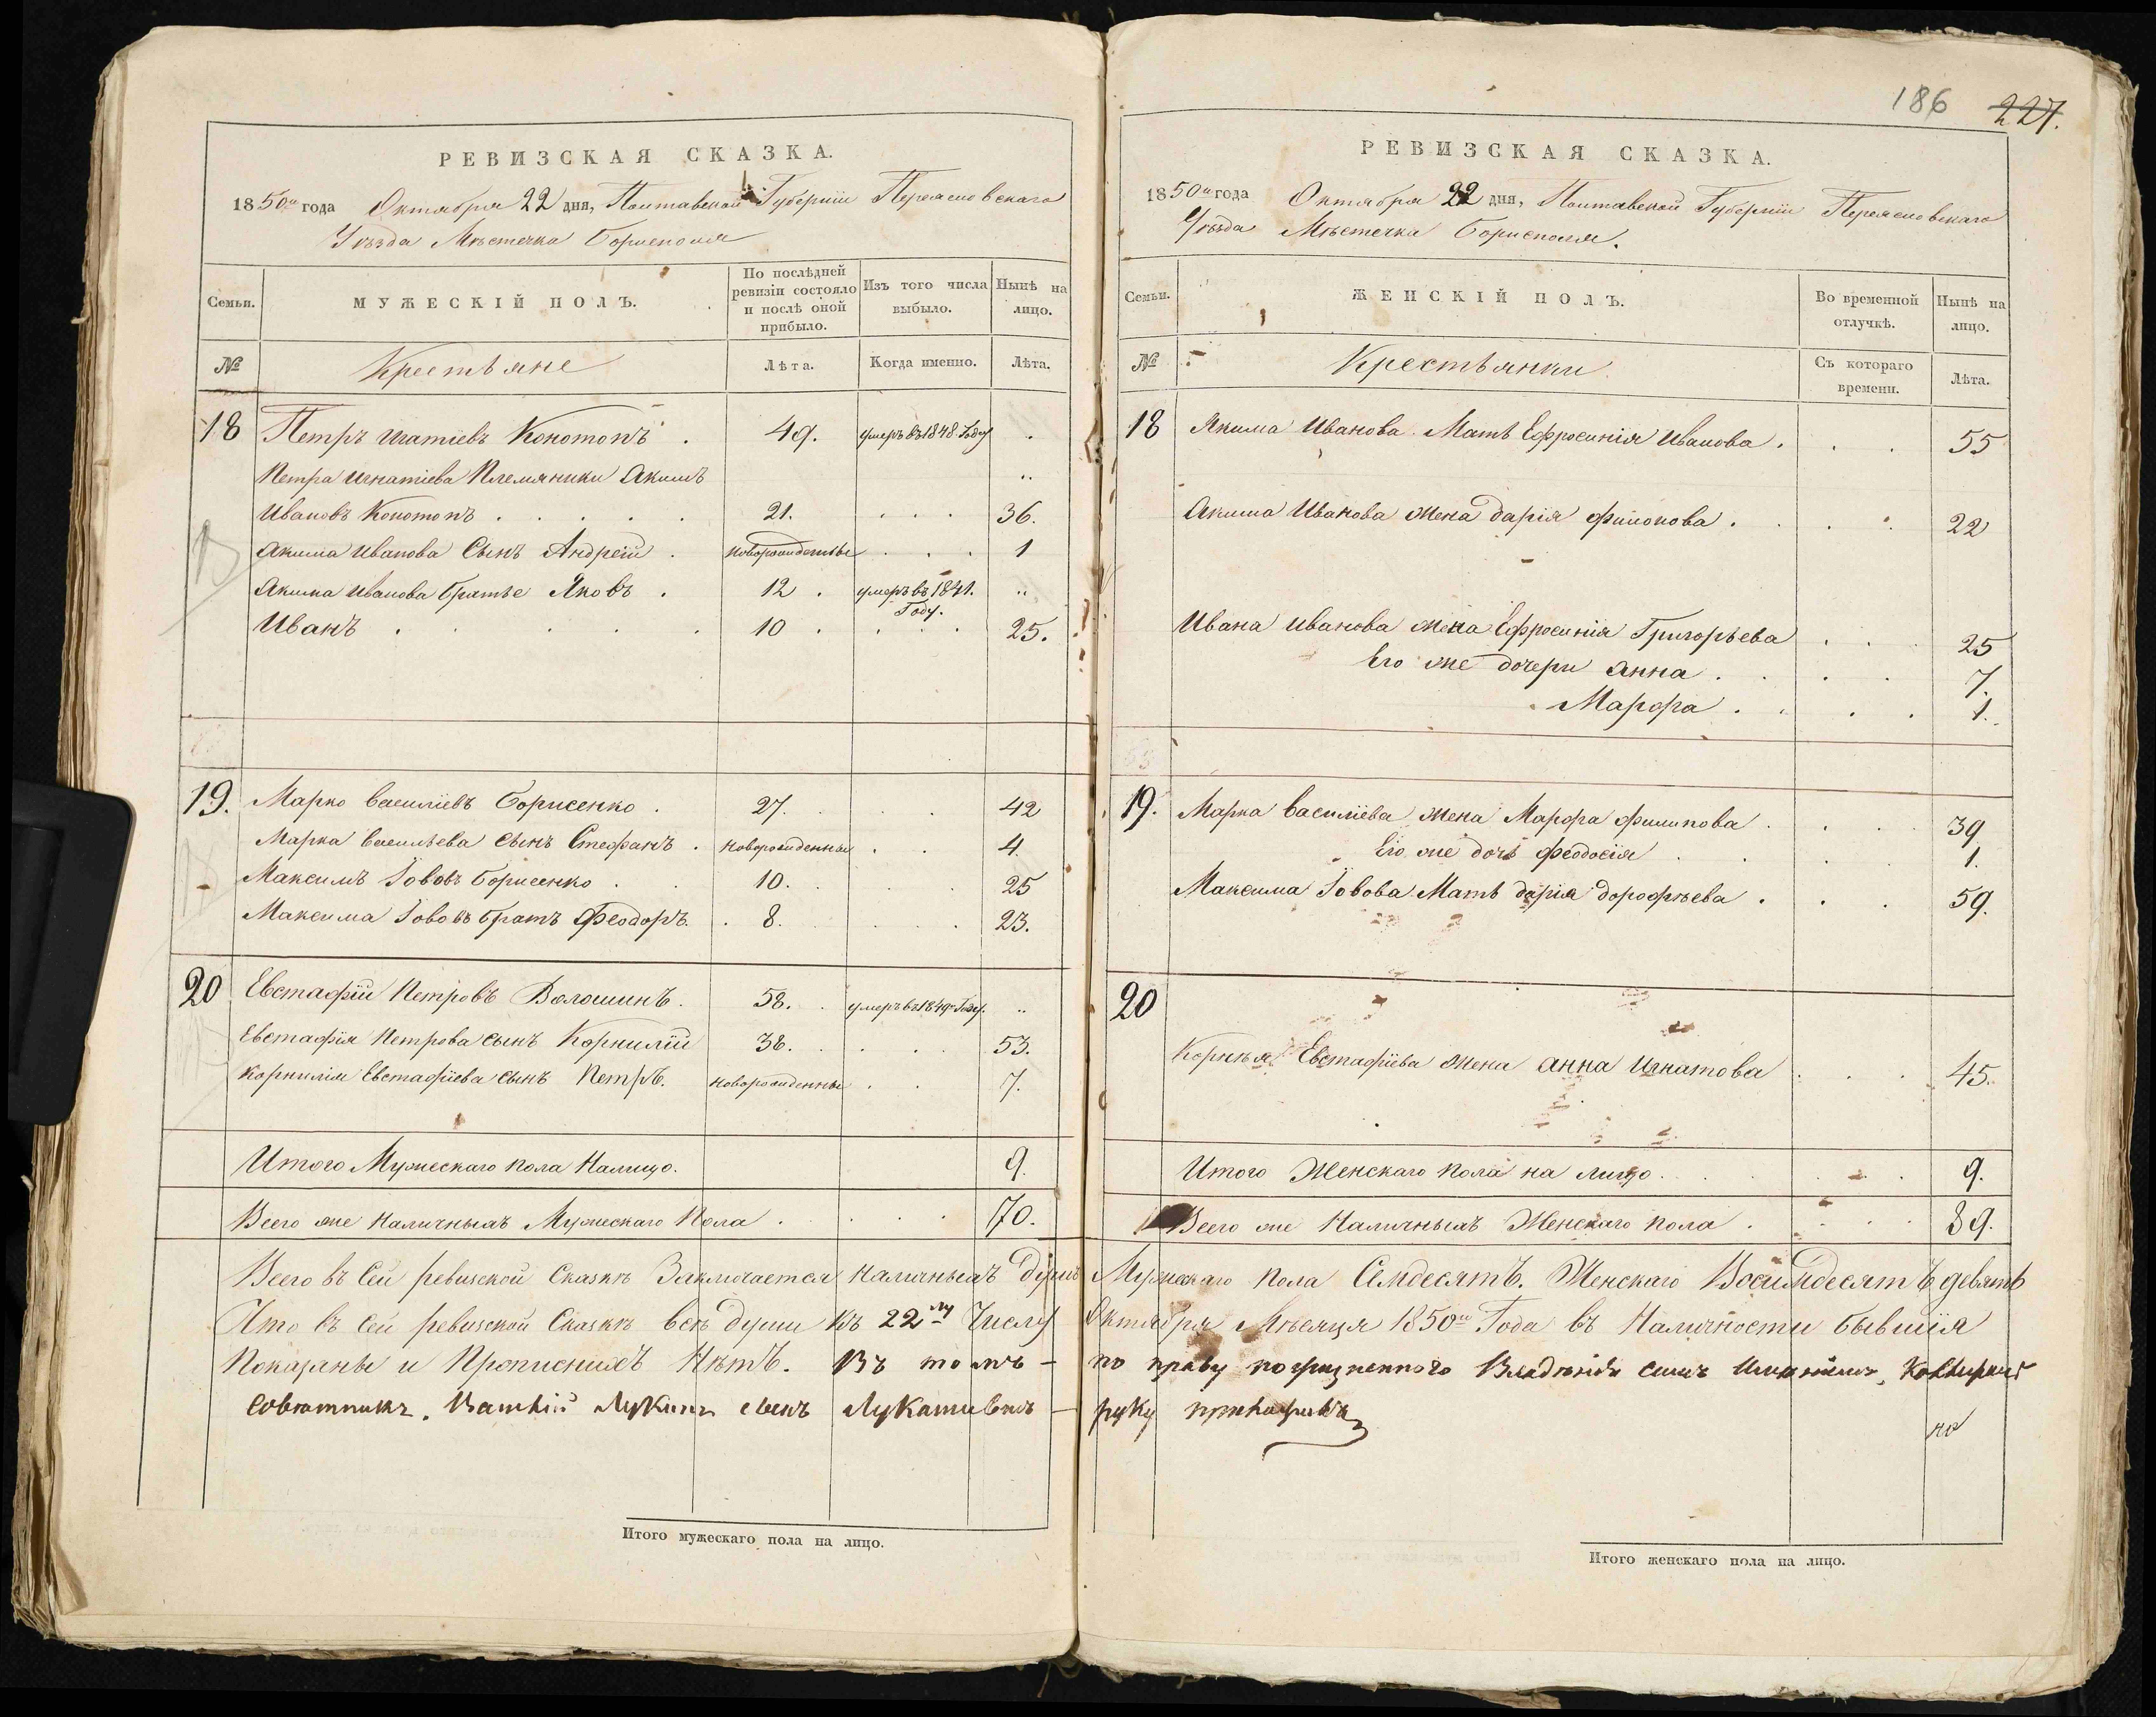 РЕВИЗСКАЯ СКАЗКА.
1850го года Октября 22 дня, Полтавской Губернiи Переясловскаго
Уѣзда Мѣстечка Борисполя
Семьи.
МУЖЕСКIЙ ПОЛЪ.
По послѣдней ревизiи состояло и послѣ оной прибыло.
Изъ того числа выбыло.
Нынѣ на лицо.
№
Крестьяне
Лѣта.
Когда именно.
Лѣта.
18 Петръ Игнатiевъ Конотопъ . 49. умеръ въ 1848 Году .
Петра Игнатiева Племяники Акимъ ..
Ивановъ Конотопъ . . . . . 21. . . . 36.
Акима Иванова Сынъ Андрей . новорожденный . . . 1
Акима Иванова братье Яковъ . 12 . умеръ въ 1841. Году. ..
Иванъ . . . . . 10 . . . . 25.
19. Марко Василiевъ Борисенко . 27. . . . 42
Марка Васильева сынъ Стефанъ . новорожденный . . 4.
Максимъ Iововъ Борисенко . . 10. . . . 25
Максима Iововъ братъ Феодоръ. . 8. . . . 23.
20 Евстафiй Петровъ Волошинъ. 58. . умеръ въ 1849 Году. ..
Евстафiя Петрова сынъ Корнилiй 38. . . . . 53.
Корнилiя Евстафiева сынъ Петръ. новорожденный . . 7.
Итого Мужескаго пола Налицо. 9.
Всего же Наличныхъ Мужескаго Пола . . . . . 70.
Итого мужескаго пола на лицо.
186 227.
РЕВИЗСКАЯ СКАЗКА.
1850го года Октября 22 дня, Полтавской Губернiи Переясловскаго
Уѣзда Мѣстечка Борисполя.
Семьи.
ЖЕНСКIЙ ПОЛЪ.
Во временной отлучкѣ.
Нынѣ на лицо.
№
Крестьянки
Съ котораго времени.
Лѣта.
18 Якима Иванова Мать Ефросинiя Иванова . . . 55
Акима Иванова Жена Дарiя Филонова . . . . 22
Ивана Иванова Жена Ефросинiя Григорьева . . 25
Его же дочери Анна . . . . 7.
Марфа . . . . 1.
19. Марка Василiева Жена Марфа Филипова . . . 39
Его же дочь Феодосiя . . . 1.
Максима Iовова Мать Дарiя Дорофѣева . . . 59.
20
Корнѣя Евстафiева Жена Анна Игнатова . . . 45.
Итого Женскаго Пола на лицо . . . . . 9.
Всего же Наличныхъ Женскаго пола . . . . 89.
Всего въ Сей ревизской Сказкѣ Заключается Наличныхъ Душъ Мужескаго пола Семдесятъ. Женскаго Восимдесятъ девять
Что въ сей ревизской Сказкѣ всѣ души къ 22му Числу Октября Мѣсяца 1850го Года въ Наличности бывшiя
Показаны и Прописныхъ Нѣтъ. Въ томъ – по праву Владѣнiя симъ Имѣнiемъ,
Совѣтникъ, Лукинъ сынъ Лукашевичъ – руку приложилъ
Итого женскаго пола на лицо.